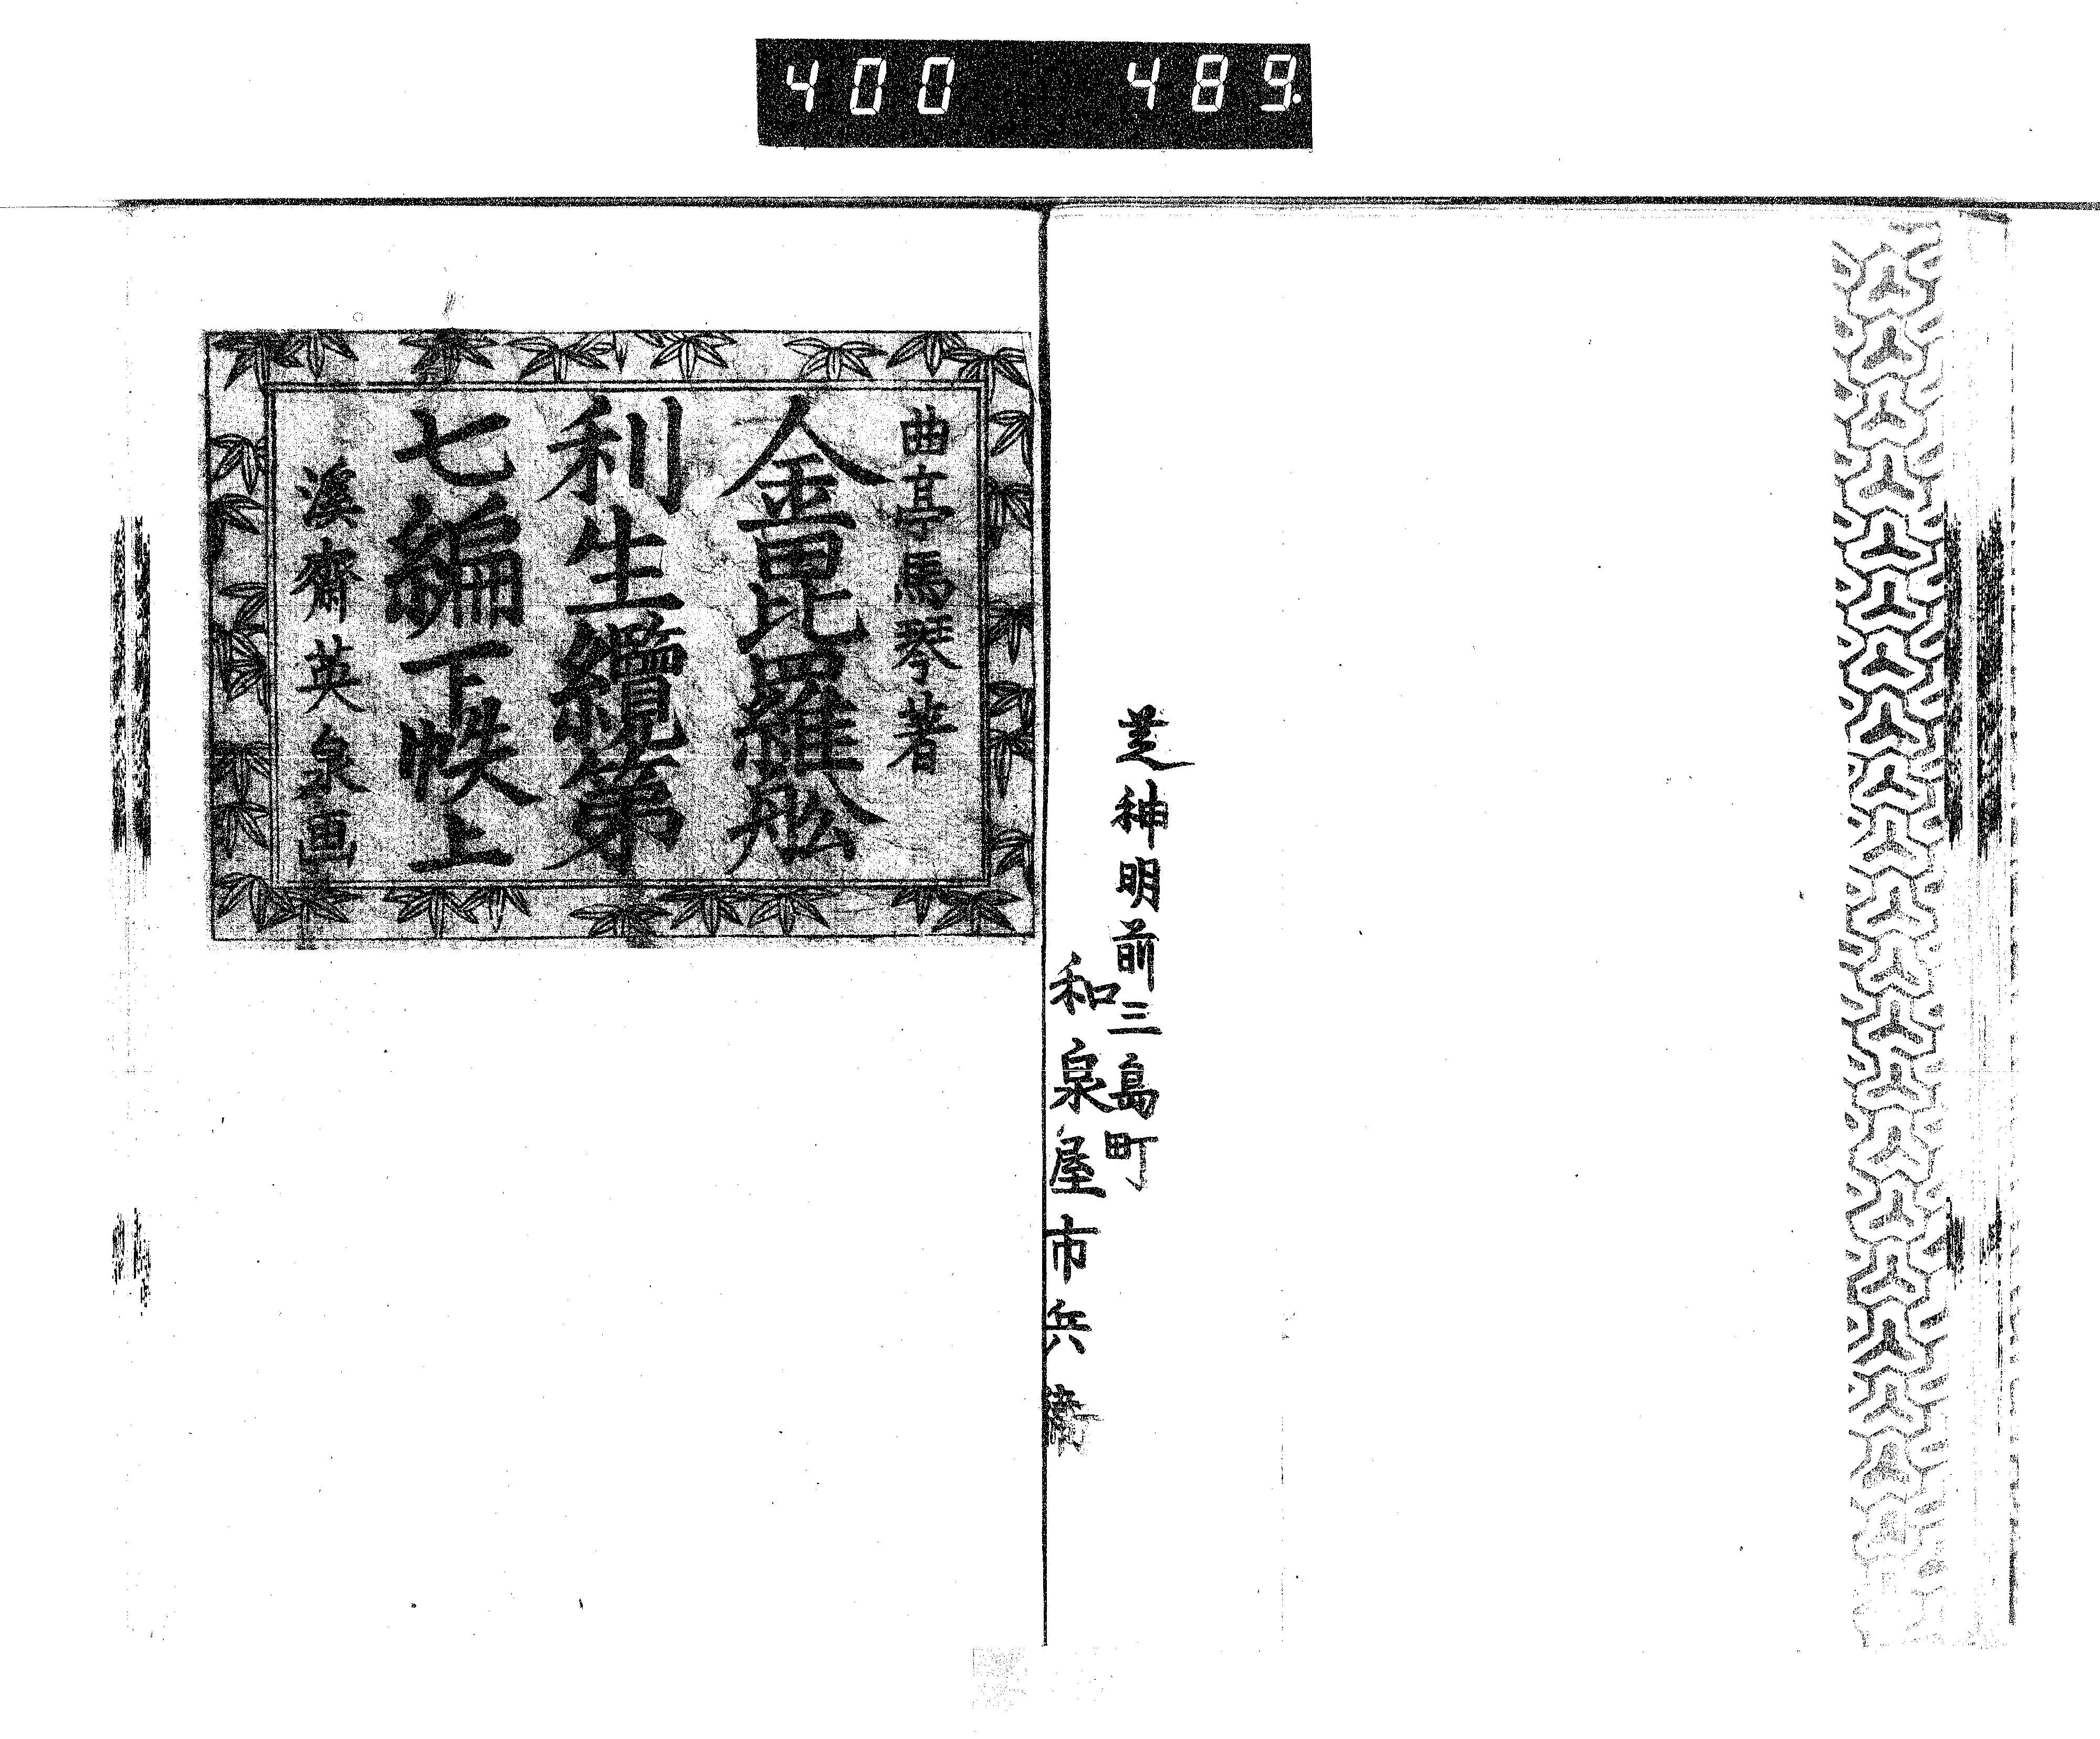 400 489
芝神明前三島町
和泉屋市兵衛
曲亭馬琴著
金毘羅舩
利生纜第
七編下帙上
溪齋英泉画